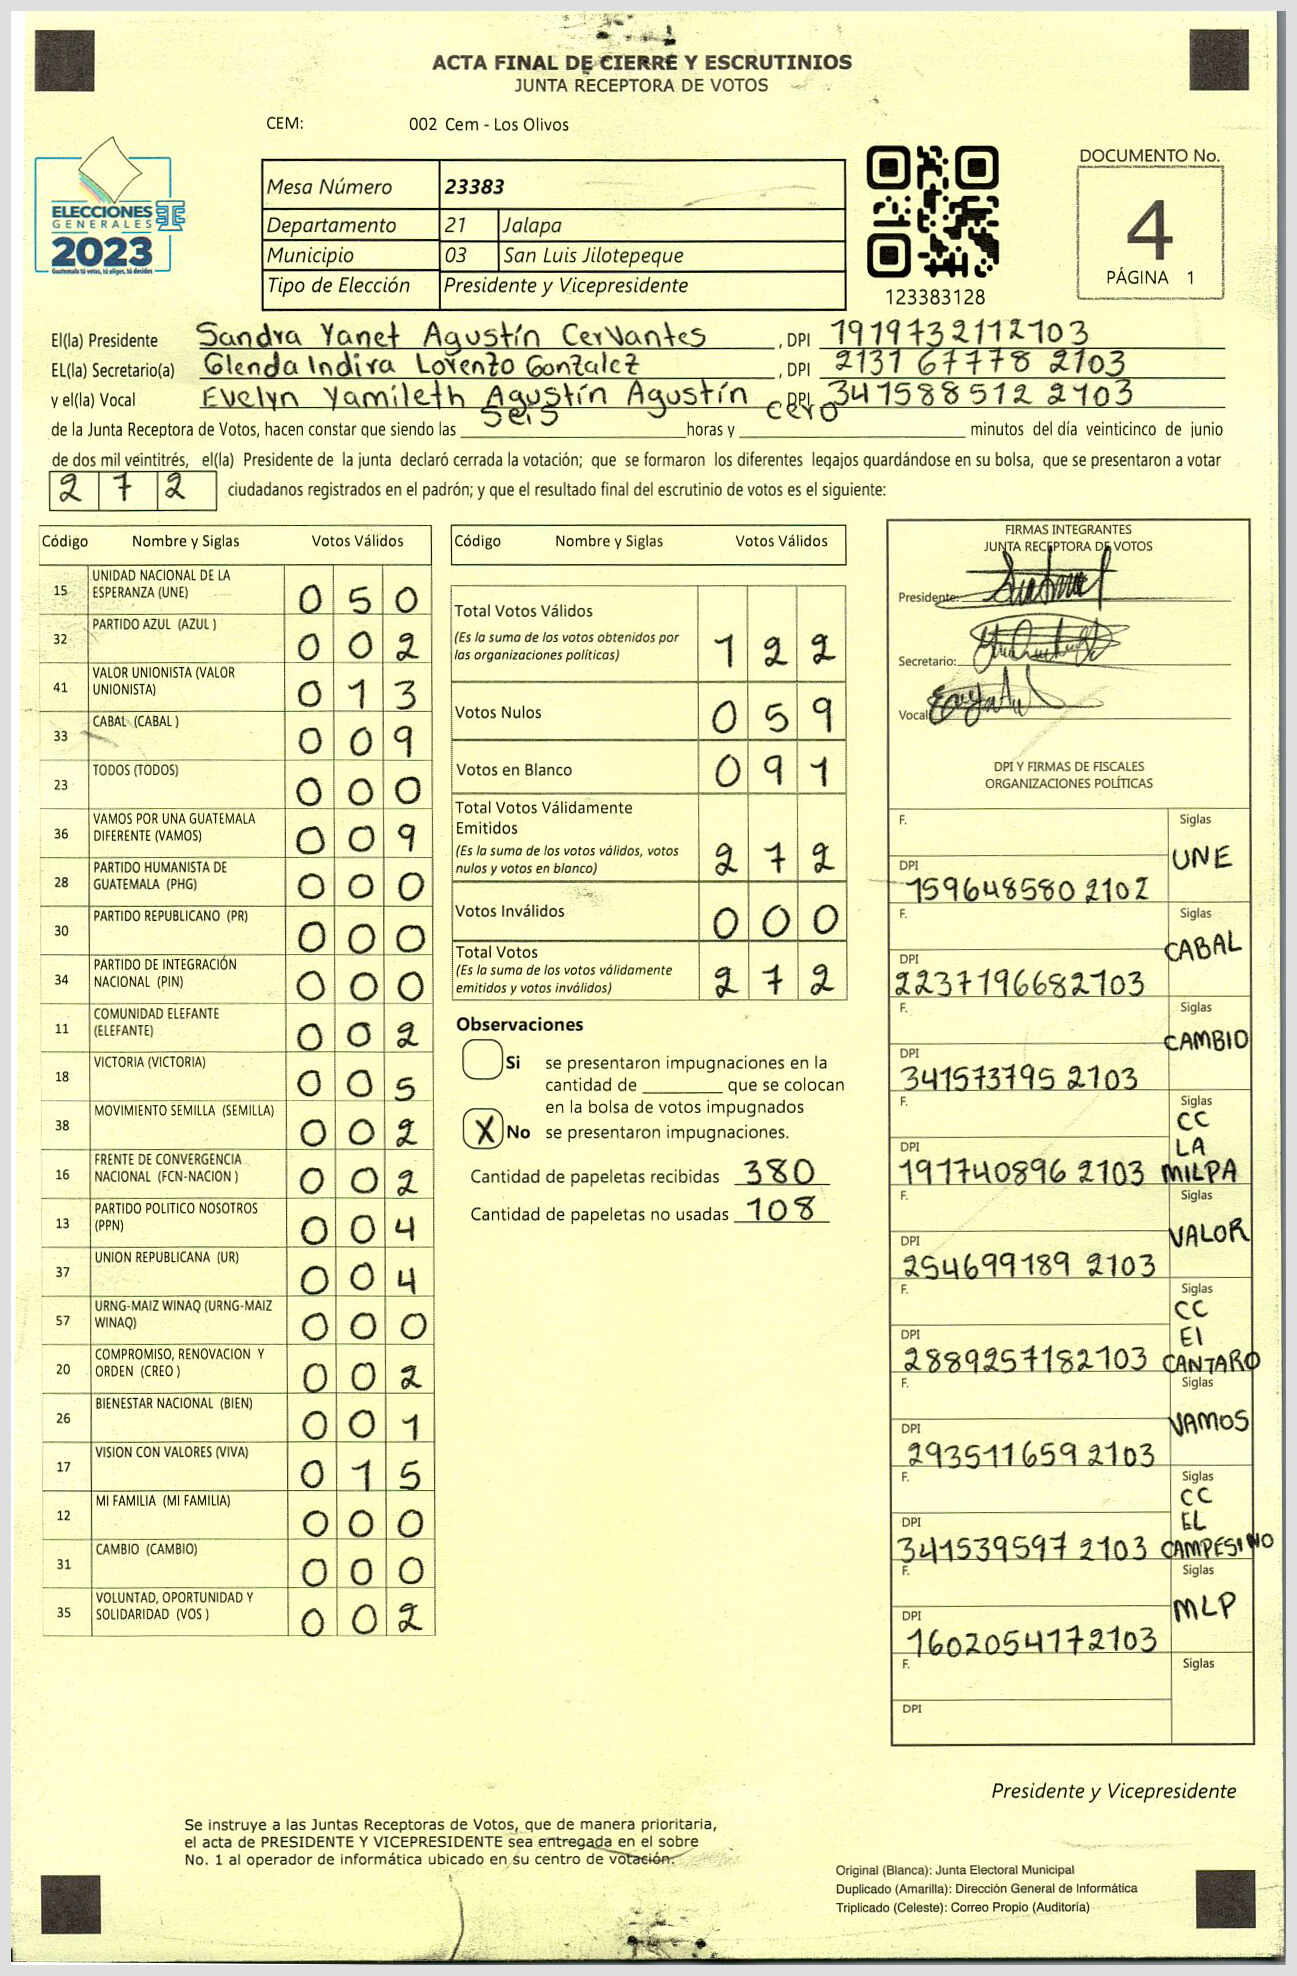 ACTA FINAL DE CIERRE Y ESCRUTINIOS
JUNTA RECEPTORA DE VOTOS
CEM: 002 Cem - Los Olivos
ELECCIONES
GENERALES
2023
Guatemala tú votas, tú eliges, tú decides
Mesa Número 23383
Departamento 21 Jalapa
Municipio 03 San Luis Jilotepeque
Tipo de Elección Presidente y Vicepresidente
123383128
DOCUMENTO No.
4
PÁGINA 1
El(la) Presidente Sandra Yanet Agustín Cervantes, DPI 1919732112103
EL(la) Secretario(a) Glenda Indira Lorenzo Gonzalez, DPI 2131 67778 2103
y el(la) Vocal Evelyn Yamileth Agustín Agustín DPI 341588512 2103
de la Junta Receptora de Votos, hacen constar que siendo las seis horas y cero minutos del día veinticinco de junio
de dos mil veintitrés, el(la) Presidente de la junta declaró cerrada la votación; que se formaron los diferentes legajos guardándose en su bolsa, que se presentaron a votar
272 ciudadanos registrados en el padrón; y que el resultado final del escrutinio de votos es el siguiente:
Código Nombre y Siglas Votos Válidos
15 UNIDAD NACIONAL DE LA ESPERANZA (UNE) 050
32 PARTIDO AZUL (AZUL ) 002
41 VALOR UNIONISTA (VALOR UNIONISTA) 013
33 CABAL (CABAL ) 009
23 TODOS (TODOS) 000
36 VAMOS POR UNA GUATEMALA DIFERENTE (VAMOS) 009
28 PARTIDO HUMANISTA DE GUATEMALA (PHG) 000
30 PARTIDO REPUBLICANO (PR) 000
34 PARTIDO DE INTEGRACIÓN NACIONAL (PIN) 000
11 COMUNIDAD ELEFANTE (ELEFANTE) 002
18 VICTORIA (VICTORIA) 005
38 MOVIMIENTO SEMILLA (SEMILLA) 002
16 FRENTE DE CONVERGENCIA NACIONAL (FCN-NACION ) 002
13 PARTIDO POLITICO NOSOTROS (PPN) 004
37 UNION REPUBLICANA (UR) 004
57 URNG-MAIZ WINAQ (URNG-MAIZ WINAQ) 000
20 COMPROMISO, RENOVACION Y ORDEN (CREO ) 002
26 BIENESTAR NACIONAL (BIEN) 001
17 VISION CON VALORES (VIVA) 015
12 MI FAMILIA (MI FAMILIA) 000
31 CAMBIO (CAMBIO) 000
35 VOLUNTAD, OPORTUNIDAD Y SOLIDARIDAD (VOS ) 002
Código Nombre y Siglas Votos Válidos
Total Votos Válidos
(Es la suma de los votos obtenidos por las organizaciones políticas) 122
Votos Nulos 059
Votos en Blanco 091
Total Votos Válidamente Emitidos
(Es la suma de los votos válidos, votos nulos y votos en blanco) 272
Votos Inválidos 000
Total Votos
(Es la suma de los votos válidamente emitidos y votos inválidos) 272
Observaciones
Si se presentaron impugnaciones en la
cantidad de ________ que se colocan
en la bolsa de votos impugnados
X No se presentaron impugnaciones.
Cantidad de papeletas recibidas 380
Cantidad de papeletas no usadas 108
FIRMAS INTEGRANTES
JUNTA RECEPTORA DE VOTOS
Presidente:
Secretario:
Vocal
DPI Y FIRMAS DE FISCALES
ORGANIZACIONES POLÍTICAS
F. Siglas
UNE
DPI 159648580 2102
F. Siglas
CABAL
DPI 2237196682103
F. Siglas
CAMBIO
DPI 341573795 2103
F. Siglas
CC LA MILPA
DPI 191740896 2103
F. Siglas
VALOR
DPI 254699189 2103
F. Siglas
CC El CANTARO
DPI 2889257182103
F. Siglas
VAMOS
DPI 293511659 2103
F. Siglas
CC EL CAMPESINO
DPI 341539597 2103
F. Siglas
MLP
DPI 1602054172103
F. Siglas
DPI
Presidente y Vicepresidente
Se instruye a las Juntas Receptoras de Votos, que de manera prioritaria,
el acta de PRESIDENTE Y VICEPRESIDENTE sea entregada en el sobre
No. 1 al operador de informática ubicado en su centro de votación.
Original (Blanca): Junta Electoral Municipal
Duplicado (Amarilla): Dirección General de Informática
Triplicado (Celeste): Correo Propio (Auditoría)